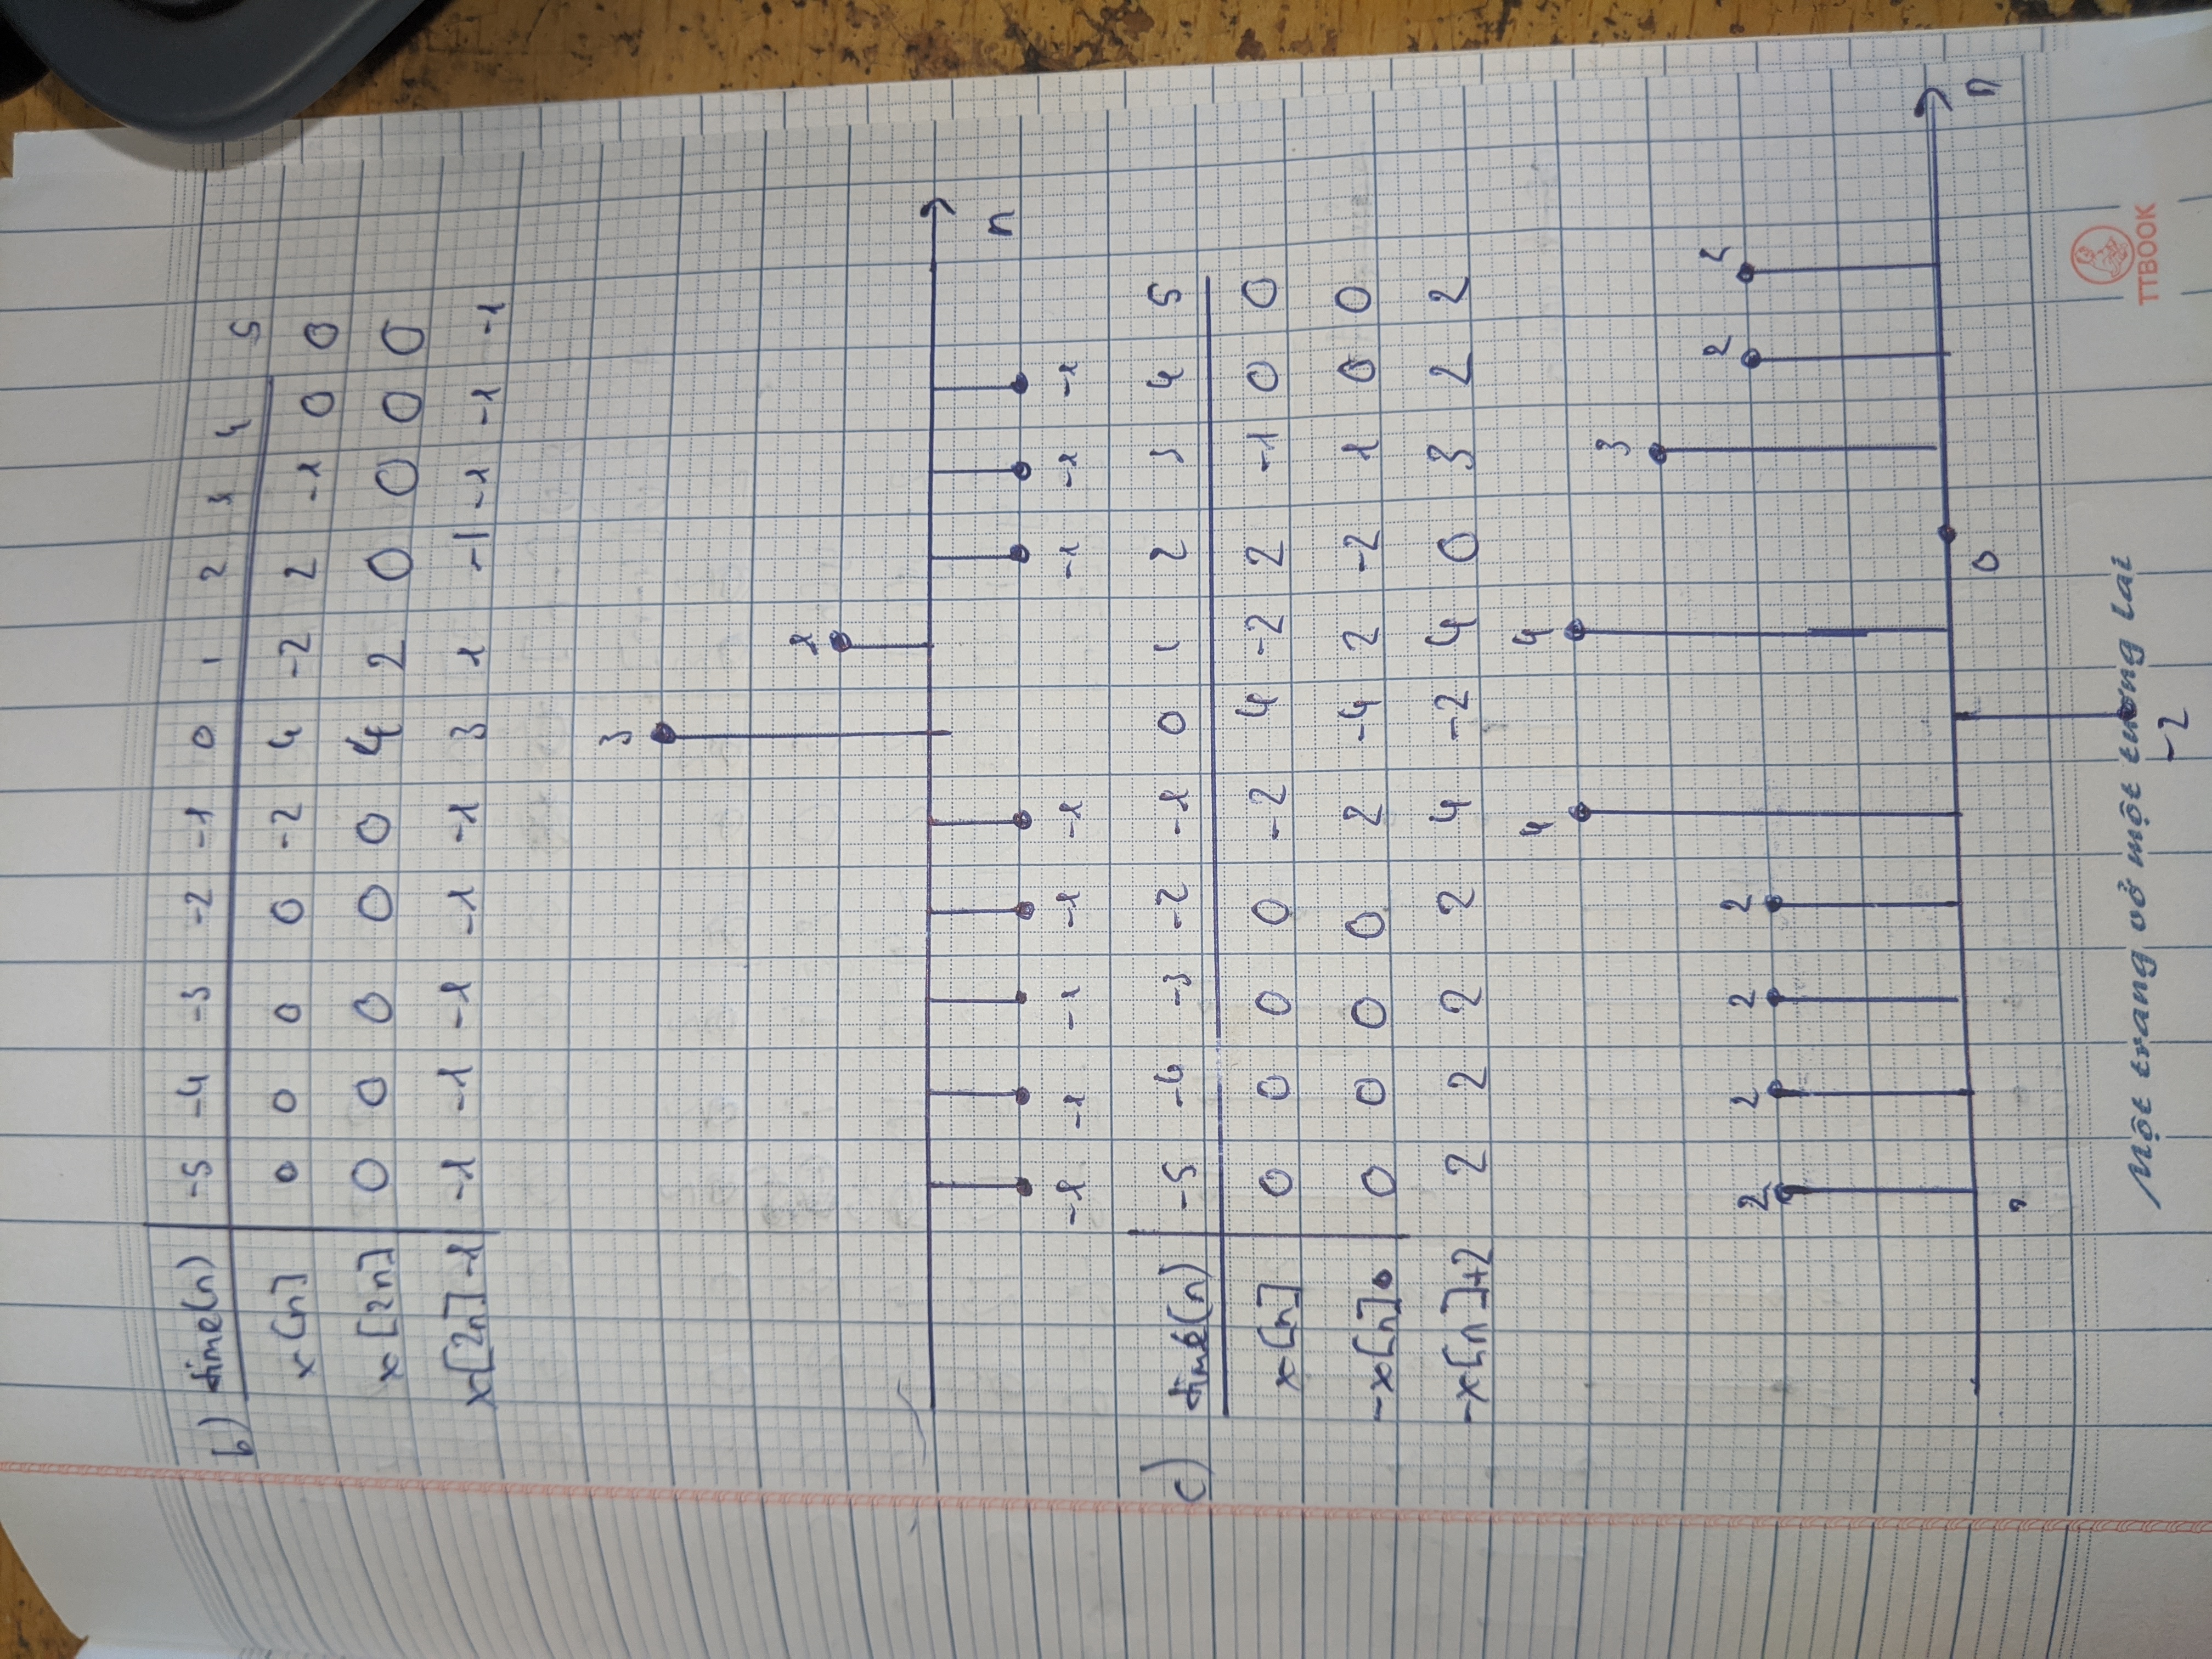 b) time(n) -5 -4 -3 -2 -1 0 1 2 3 4 5
x[n] 0 0 0 0 -2 4 -2 2 -1 0 0
x[2n] 0 0 0 0 0 4 2 0 0 0 0
x[2n]-1 -1 -1 -1 -1 -1 3 1 -1 -1 -1 -1
3
1
n
-1 -1 -1 -1 -1 -1 -1 -1
c) time(n) -5 -4 -3 -2 -1 0 1 2 3 4 5
x[n] 0 0 0 0 -2 4 -2 2 -1 0 0
-x[n] 0 0 0 0 2 -4 2 -2 1 0 0
-x[n]+2 2 2 2 2 4 -2 4 0 3 2 2
4 4
3
2 2
2 2 2 2
0 n
Một trang vở một tương lai
TTBOOK
-2